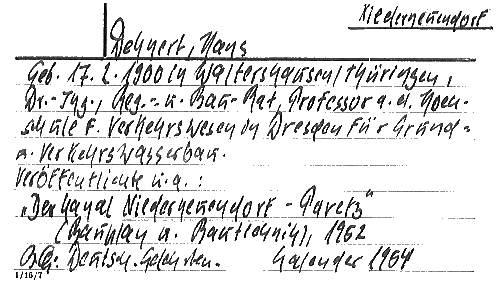 Niederneuendorf
Dehnert, Hans
Geb. 17. 2. 1900 in Waltershausen/Thüringen,
Dr.-Ing., Reg.- u. Bau-Rat, Professor a. d. Hoch-
schule f. Verkehrswesen in Dresden für Grund-
u. Verkehrswasserbau.
Veröffentlichte u.a.:
„Der Kanal Niederneuendorf - Paretz"
(Bauplan u. Bautechnik), 1952
Deutsch. Gelehrten. Kalender 1954
1/16/7